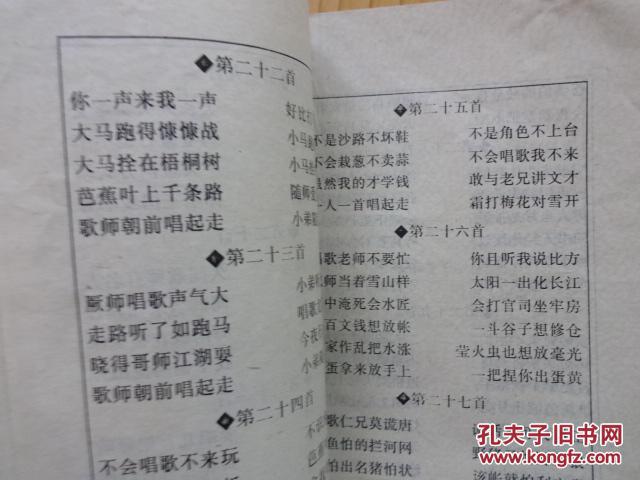 第二十二首
你一声来我一声 好比
大马跑得慷慷战 小马
大马拴在梧桐树 小马
芭蕉叶上千条路 随师
歌师朝前唱起走 小弟
第二十三首
厥师唱歌声气大 小弟
走路听了如跑马 唱歌
晓得哥师江湖耍 今夜
歌师朝前唱起走 小弟
第二十四首
不会唱歌不来玩
第二十五首
不是沙路不坏鞋 不是角色不上台
不会栽葱不卖蒜 不会唱歌我不来
然我的才学钱 敢与老兄讲文才
人一首唱起走 霜打梅花对雪开
第二十六首
歌老师不要忙 你且听我说比方
师当着雪山样 太阳一出化长江
中淹死会水匠 会打官司坐牢房
百文钱想放帐 一斗谷子想修仓
家作乱把水涨 萤火虫也想放毫光
蛋拿来放手上 一把捏你出蛋黄
第二十七首
歌仁兄莫谎唐
鱼怕的拦河网
怕出名猪怕状
孔夫子旧书网
www.kongfz.com